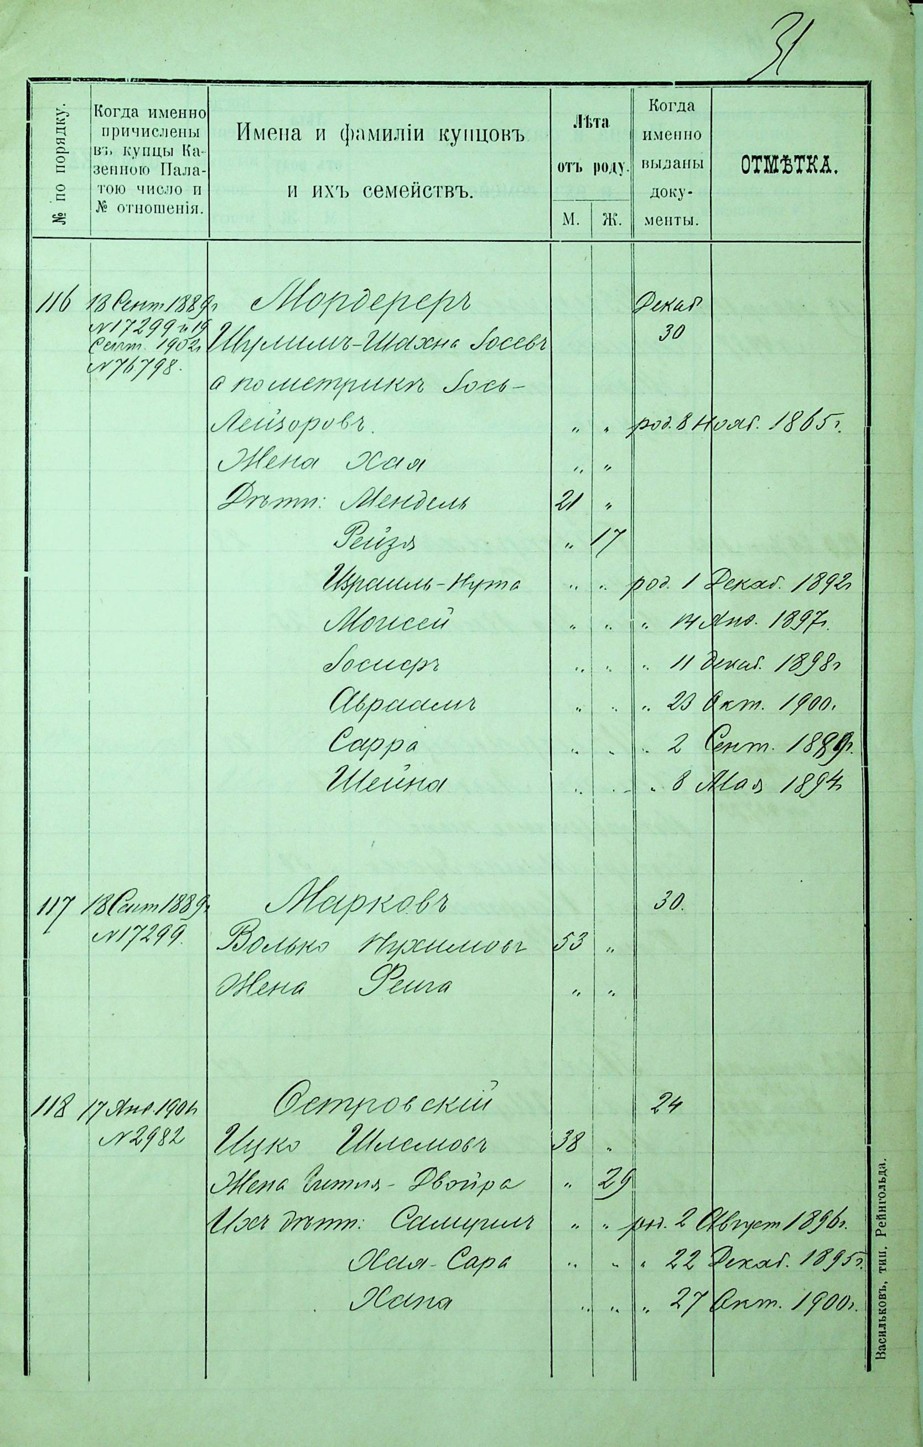 31
№ по порядку.
Когда именно причислены въ купцы Казенною Палатою число и № отношенія.
Имена и фамиліи купцовъ и ихъ семействъ.
Лѣта отъ роду.
М. Ж.
Когда именно выданы документы.
ОТМѢТКА.
116 18 Сент 1889г Мордереръ Декаб.
№17299 и 19 30
Сент. 1902г Шулимъ-Шахна Іосевъ
№76798. а по метрикѣ Іось-
Лейзоровъ. " " род. 8 Нояб. 1865г.
Жена Хая " "
Дѣти: Мендель 21 "
Рейзя " 17
Израиль-Нута " " род. 1 Декаб. 1892г
Моисей " " " 14 Янв. 1897г.
Іосифъ " " " 11 Декаб. 1898г
Авраамъ " " " 23 Окт. 1900г.
Сарра " " " 2 Сент. 1889г.
Шейна " " " 8 Мая 1894г
117 18 Сент 1889г. Марковъ 30.
№17299. Волько Нухимовъ 53 "
Жена Фейга " "
118 17 Янв. 1901г. Островскій 24
№2982 Ицко Шлемовъ 38 "
Жена Гитля-Двойра " 29
Ихъ дѣти: Самуилъ " " род. 2 Август 1896г.
Хая-Сара " " " 22 Декаб. 1895г.
Хана " " " 27 Окт. 1900г.
Васильковъ, тип. Рейнгольда.